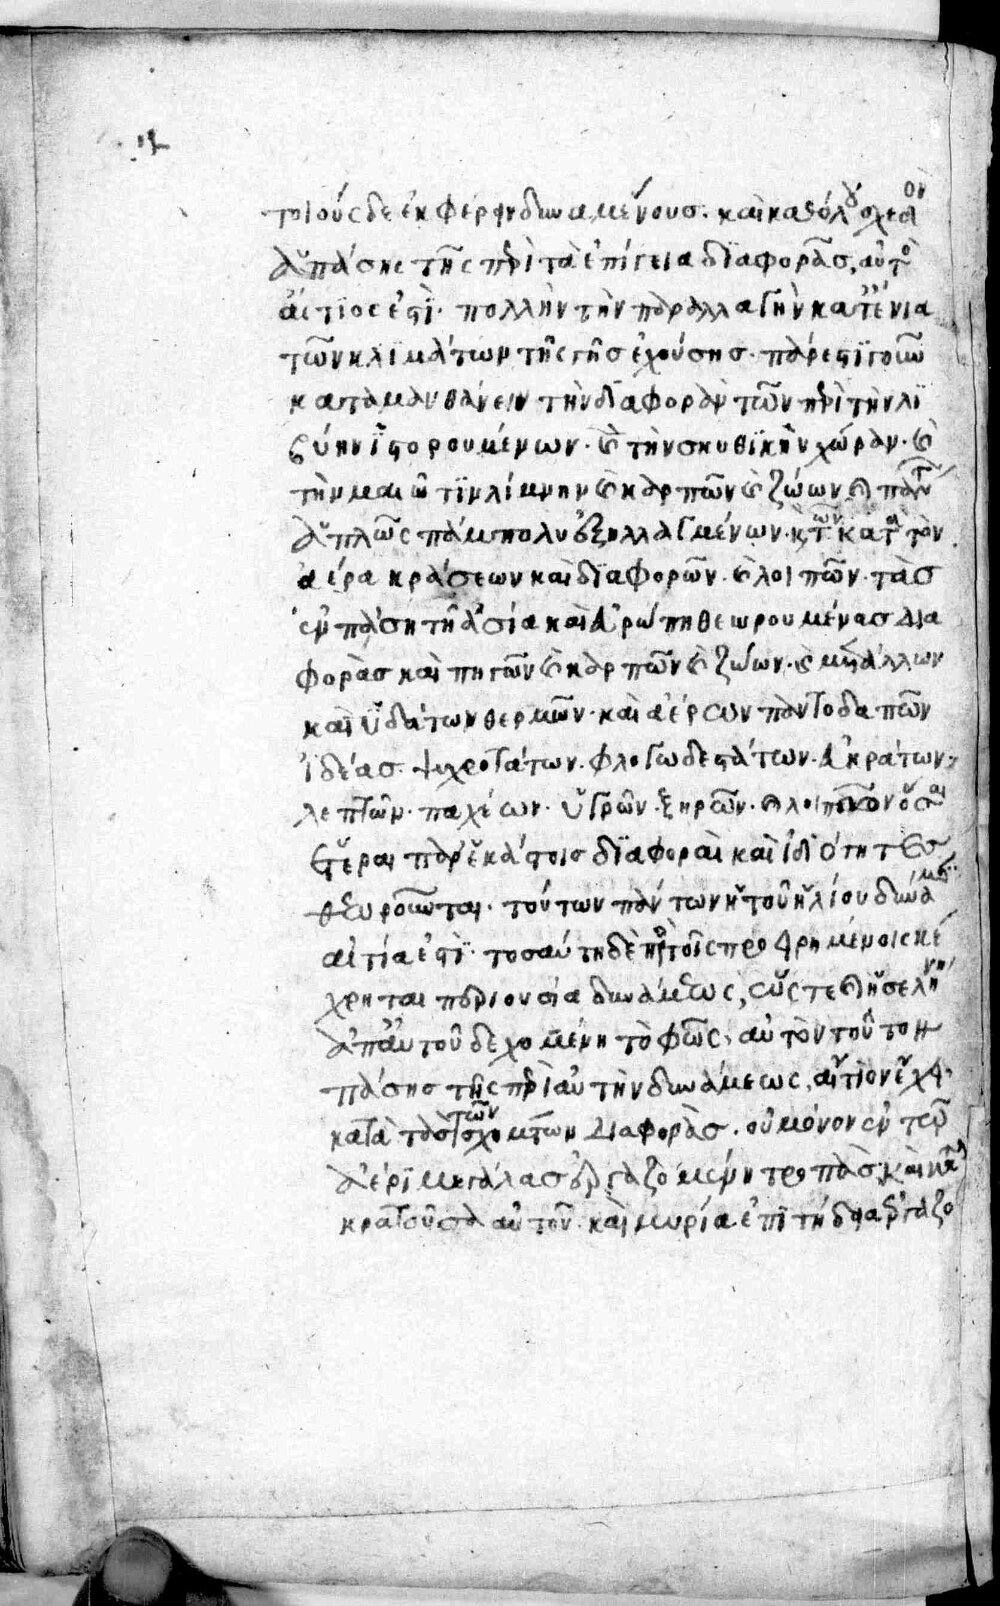 τοιούς δε ἐκφέρειν δυναμένους. καὶ καθόλου σχεδὸν
ἁπάσης τῆς περὶ τὰ ἐπίγεια διαφορᾶς, αὐτὸ
αἴτιος ἐστὶ. πολλὴν τὴν παραλλαγὴν κατ ἔνια
τῶν κλιμάτων τῆς γῆς ἐχούσης. πάρεστι γοῦν
καταμανθάνειν τὴν διαφορὰν τῶν περὶ τὴν λι
βύην ἱστορουμένων. καὶ τὴν σκυθικὴν χώραν. καὶ
τὴν μαιῶτιν λίμνην καὶ καρπῶν καὶ ζώων καὶ πάντων
ἁπλῶς πάμπολυ ἐξηλλαγμένων. καὶ τῶν κατὰ τὸν
ἀέρα κράσεων καὶ διαφορῶν. καὶ λοιπῶν. τὰς
ἐν πάση τῆ ἀσία καὶ εὐρώπη θεωρουμένας δια
φορὰς καὶ πηγῶν καὶ καρπῶν καὶ ζώων. καὶ μετάλλων
καὶ ὑδάτων θερμῶν. καὶ ἀέρων παντοδαπῶν
ἰδέας. ψυχροτάτων. φλογωδεστάτων. εὐκράτων.
λεπτῶν. παχέων. ὑγρῶν. ξηρῶν. καὶ
ἕτεραι παρ ἑκάστοις διαφοραὶ καὶ ἰδιότητες
εὑροῦνται. τούτων πάντων ἡ τοῦ ἡλίου δύναμις
αἰτία ἐστὶ. τοσαύτη δὲ πρὸς τοῖς προειρημένοις κέ
χρηται περιουσία δυνάμεως, ὥς τε καὶ ἡ σελήνη
ἀπ αὐτοῦ δεχομένη τὸ φῶς, αὐτὸν τοῦτον
πάσης τῆς περὶ αὐτὴν δυνάμεως, αἴτιον ἔχει.
κατὰ τὰς τῶν σχημάτων διαφορὰς. οὐ μόνον ἐν τῶ
ἀέρι μεγάλας ἐργαζομένη τροπὰς, καὶ κατα
κρατοῦσα αὐτοῦ. καὶ μυρία ἐπιτήδεια ἐργαζο